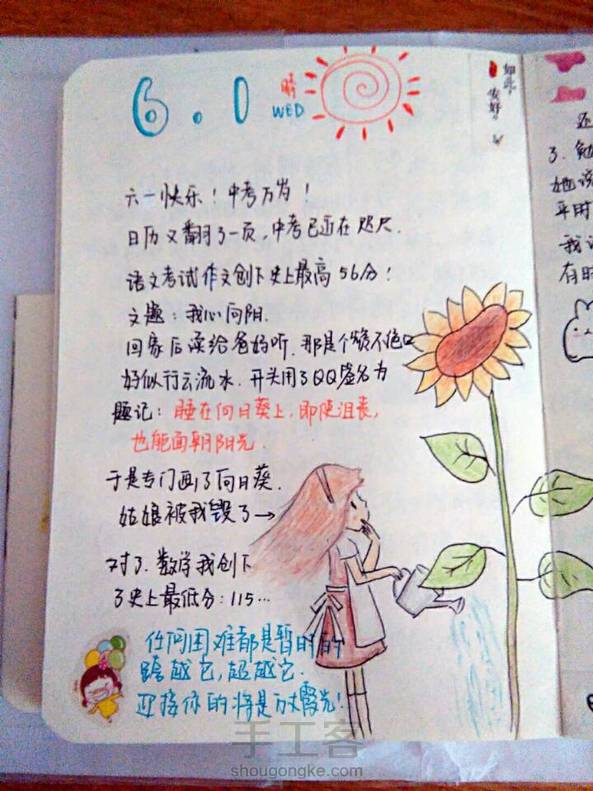 6.1
晴
WED
如此,
安好。
六一快乐!中考万岁!
日历又翻了一页,中考已近在咫尺.
语文考试作文创下史上最高56分!
文题:我心向阳.
回家后读给爸妈听.那是个赞不绝口
好似行云流水.开头用了QQ签名为
题记:睡在向日葵上,即使沮丧,
也能面朝阳光.
于是专门画了向日葵.
姑娘被我毁了→
对了.数学我创下
了史上最低分:115...
任何困难都是暂时的
跨越它,超越它.
迎接你的将是万丈霞光!
还
了.勉
她说
平时
有时
手工客
shougongke.com